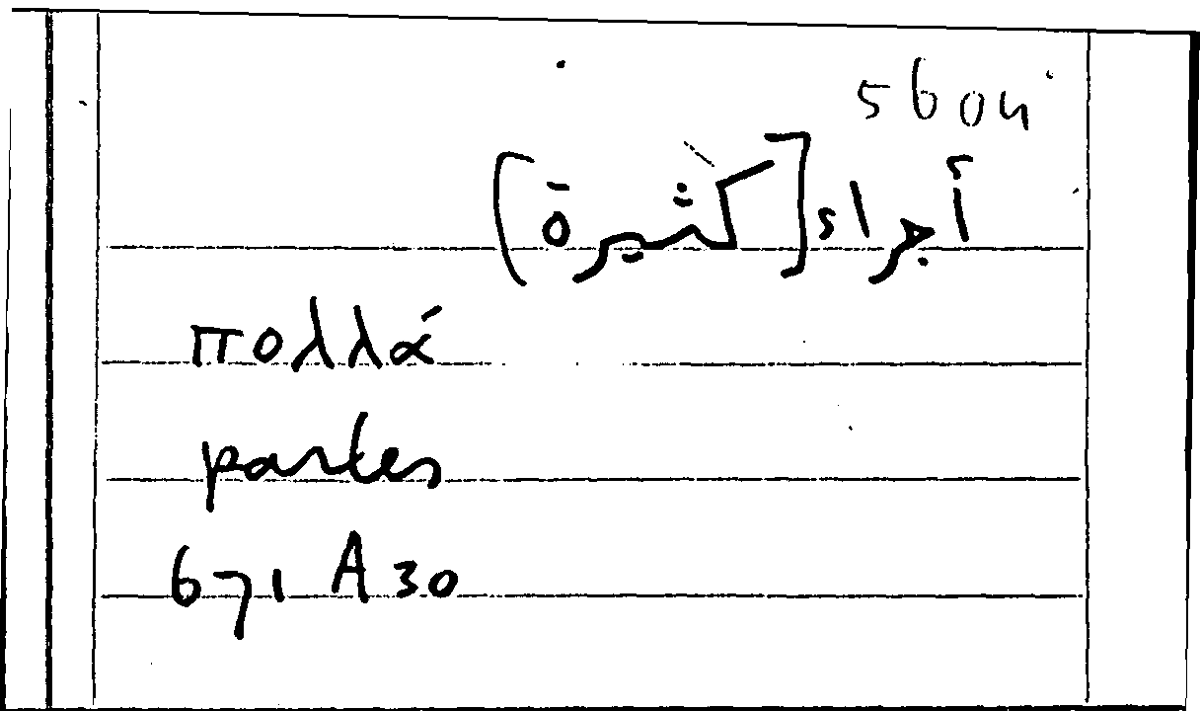 5604
أجراء [كثيرة]
πολλά
partes
671 A 30